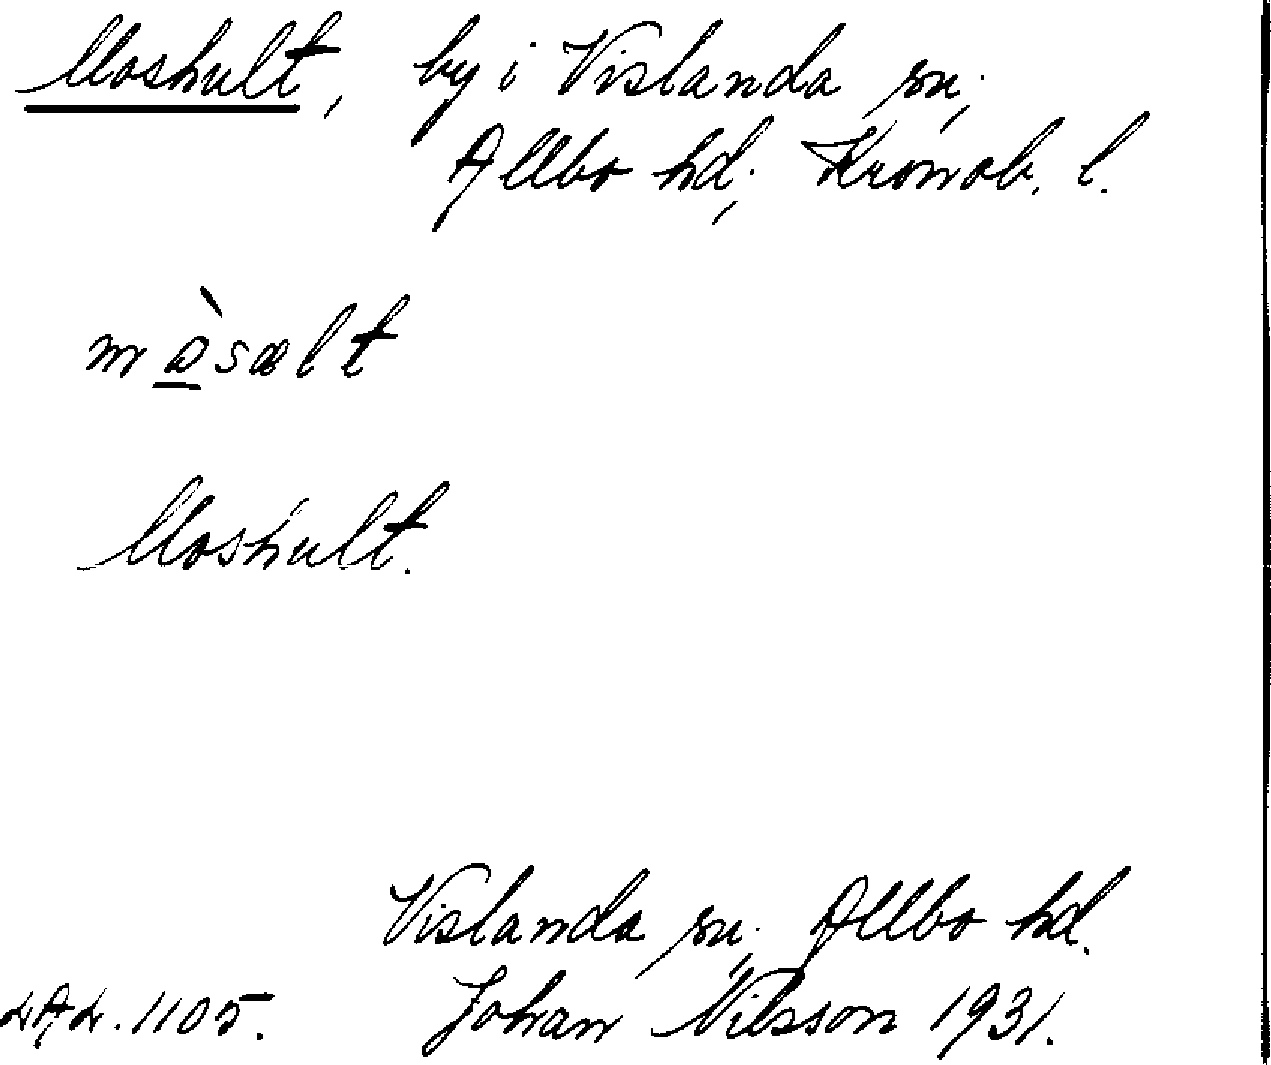 Moshult, by i Vislanda sn.,
Allbo hd., Kronob. l.
mɷ̠̀sælt
Moshult.
Vislanda sn. Allbo hd.
LAL. 1105. Johan Nilsson 1931.